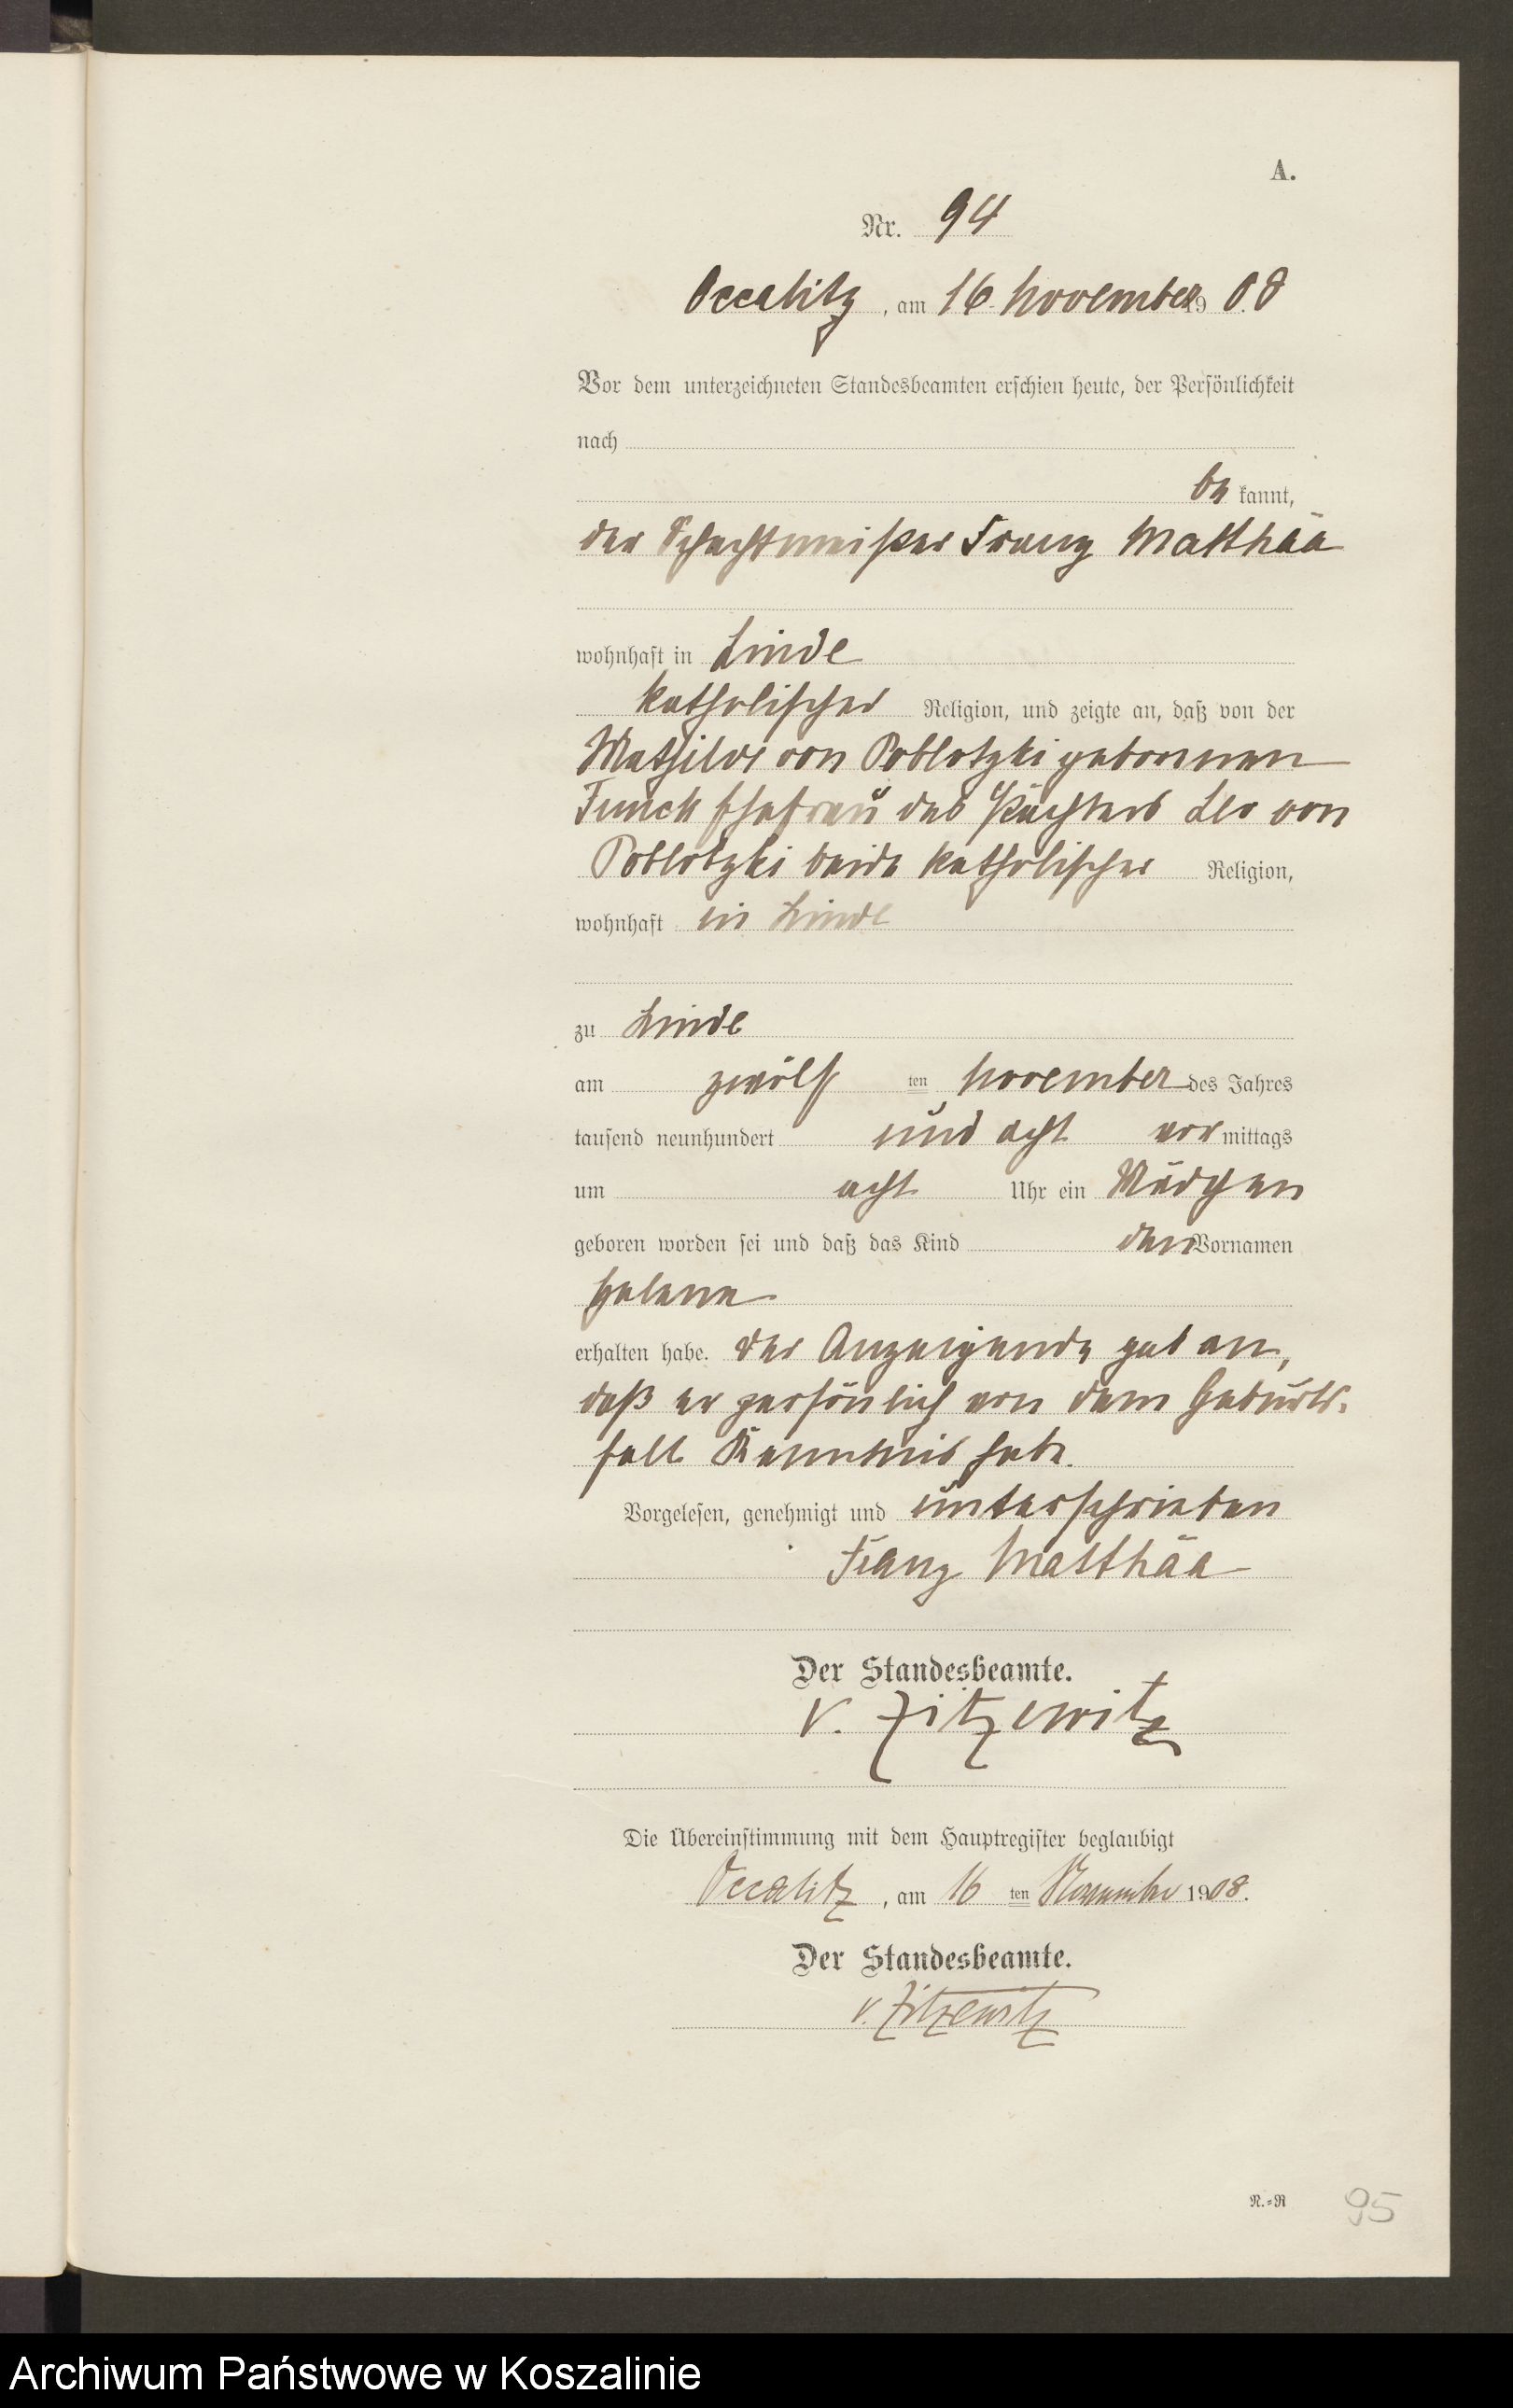 A.
Nr. 94
Occalitz, am 16. November 1908
Vor dem unterzeichneten Standesbeamten erschien heute, der Persönlichkeit
nach
be kannt,
der Schachtmeister Franz Matthäa
wohnhaft in Linde
katholischer Religion, und zeigte an, daß von der
Mathilde von Poblotzki geborenen
Funck Ehefrau des Pächters Leo von
Poblotzki beide katholischer Religion,
wohnhaft in Linde
zu Linde
am zwölf ten November des Jahres
tausend neunhundert und acht vor mittags
um acht Uhr ein Mädchen
geboren worden sei und daß das Kind den Vornamen
Helene
erhalten habe. Der Anzeigende gab an,
daß er persönlich von dem Geburts-
fall Kenntnis habe.
Vorgelesen, genehmigt und unterschrieben
Franz Matthäa
Der Standesbeamte.
v. Zitzewitz
Die Übereinstimmung mit dem Hauptregister beglaubigt
Occalitz, am 16 ten November 1908.
Der Standesbeamte.
v. Zitzewitz
N.=R
95
Archiwum Państwowe w Koszalinie